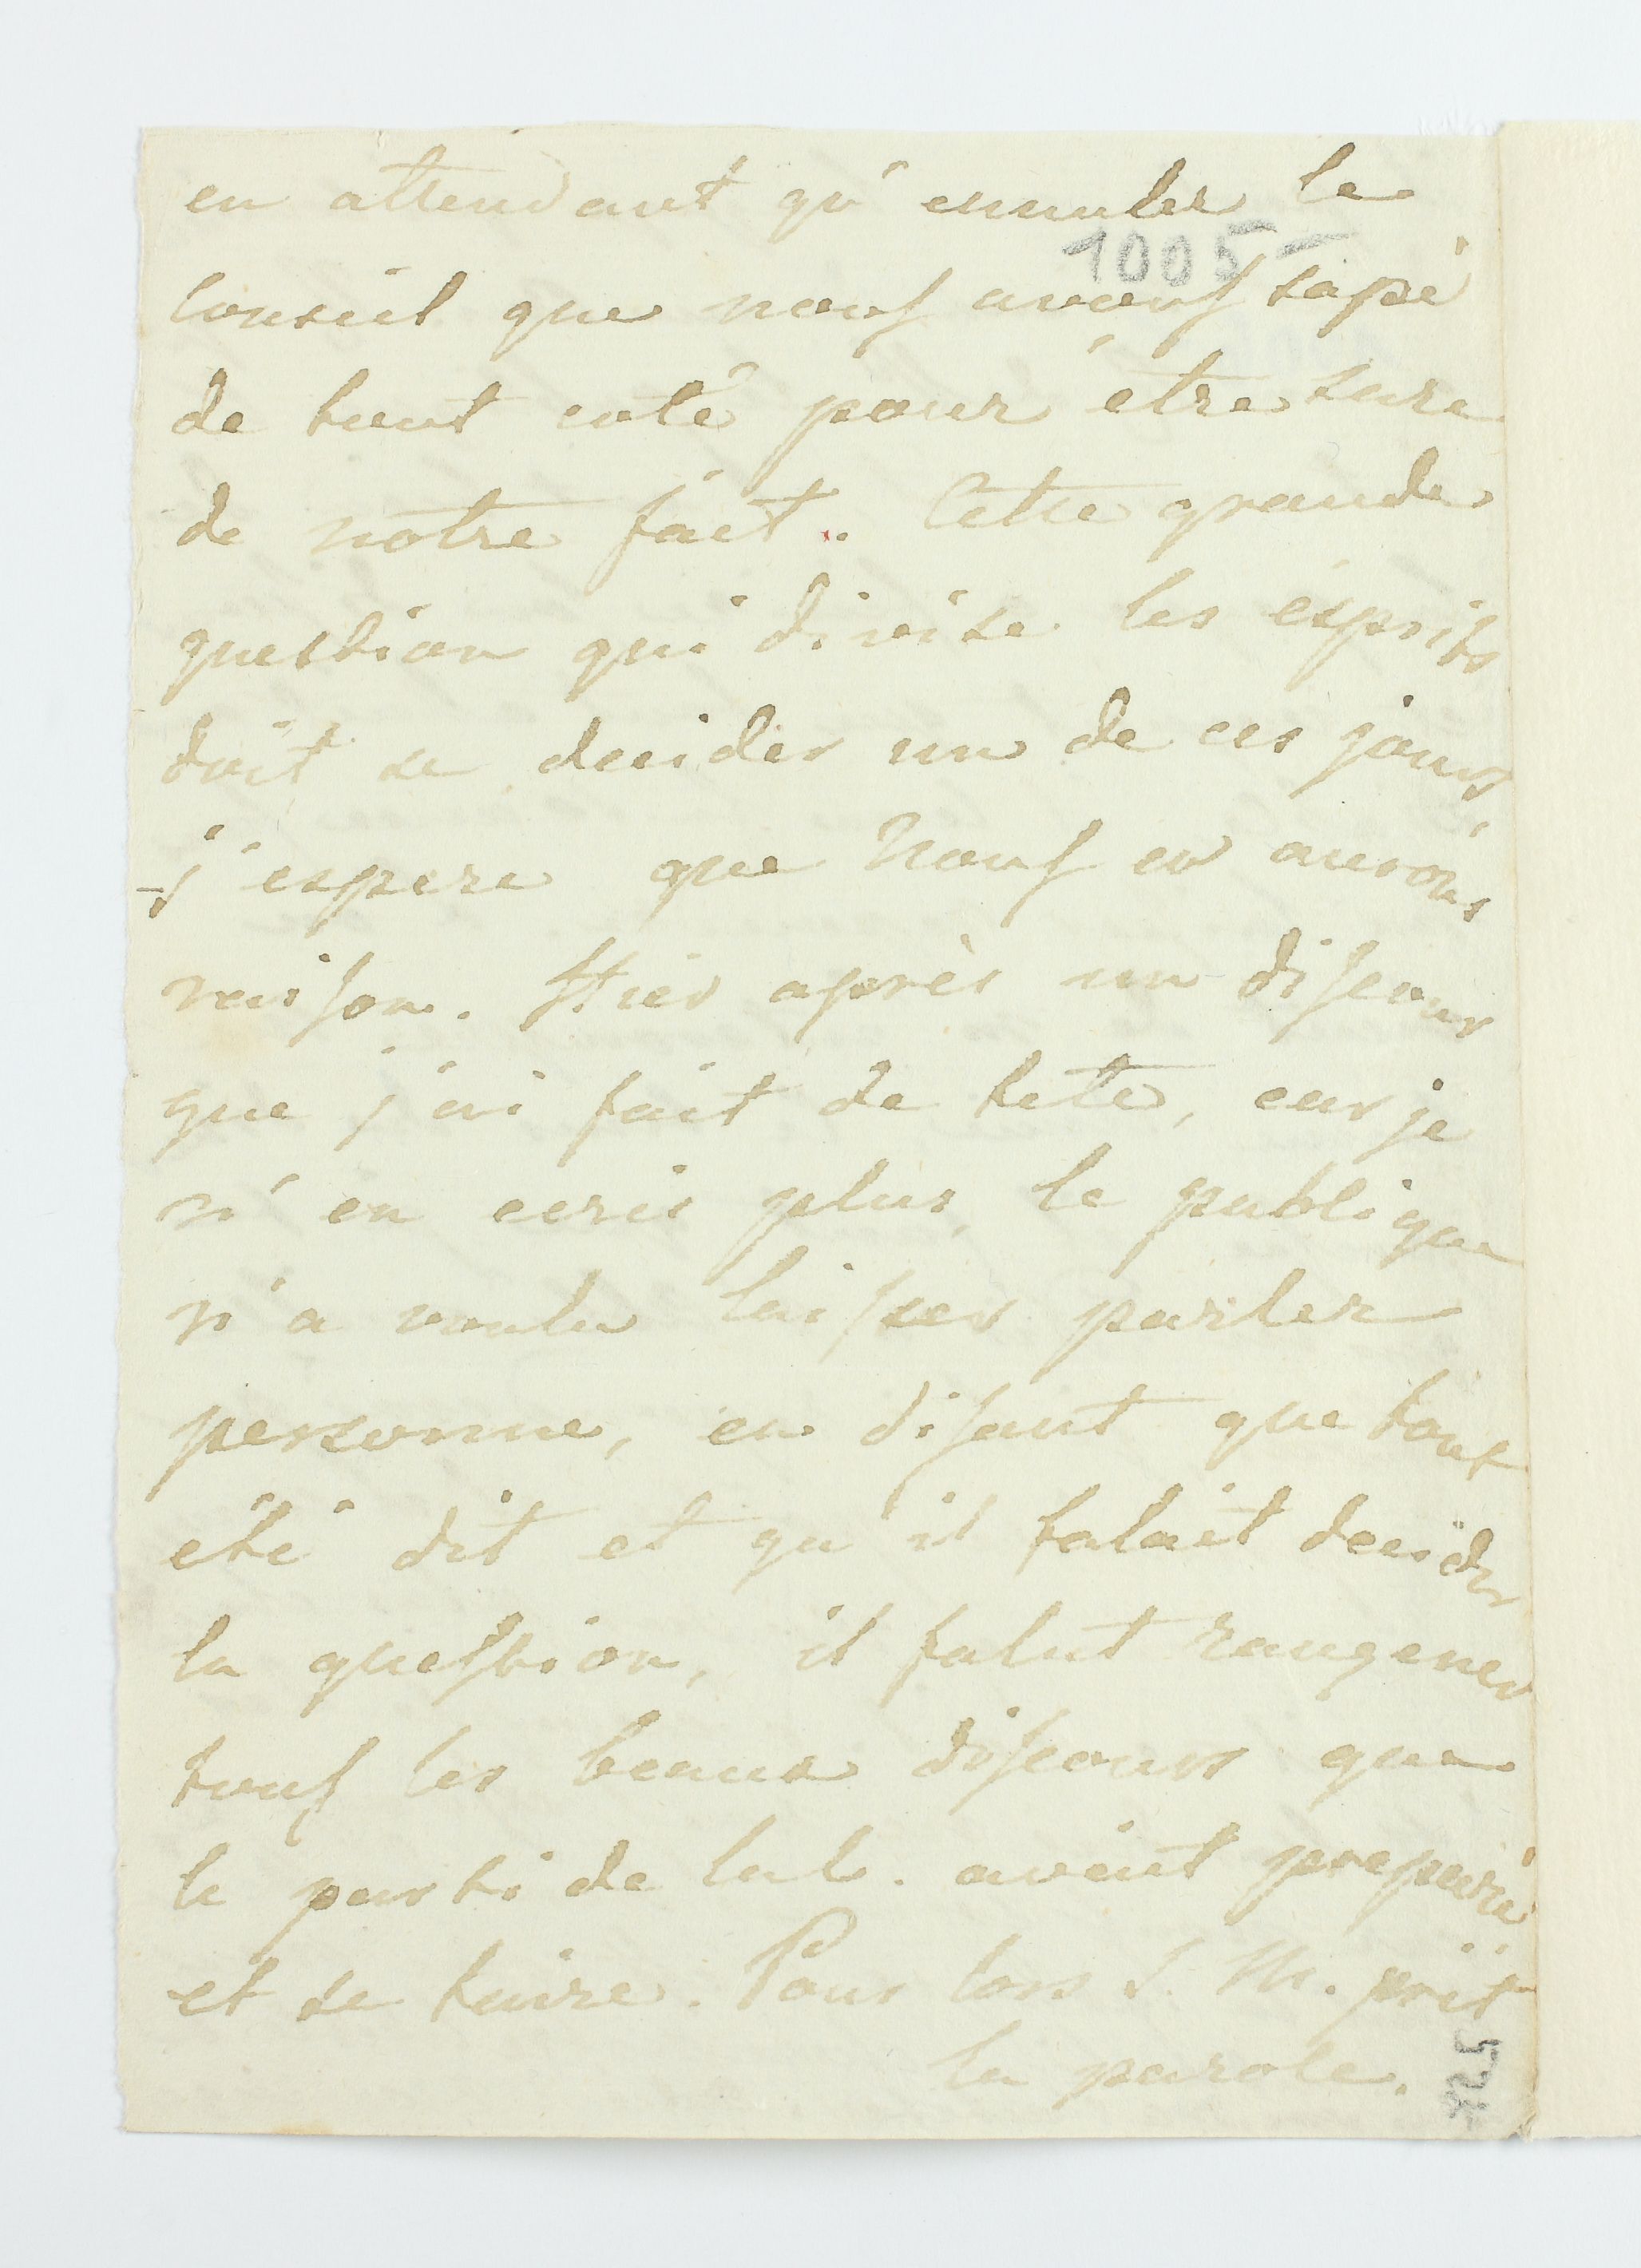 en attendant qu'ennuler le
1005
Conseil que nous avons sapé
de tout coté pour étre sure
de notre fait. Cette grande
question qui divise les esprits
doit se decider un de ces jours,
j'espere que Nous en aurons
raison. Hier après un discours
que j'ai fait de tete, car je
n'en ecris plus, le publique
n'a voulu laisser parler
personne, en disant que tout
eté dit et qu'il falait decider
la question, il falut rangener
tous les beaux discours que
le parti de Lub. avait preparé
et se taire. Pour lors S. M. prit
la parole.